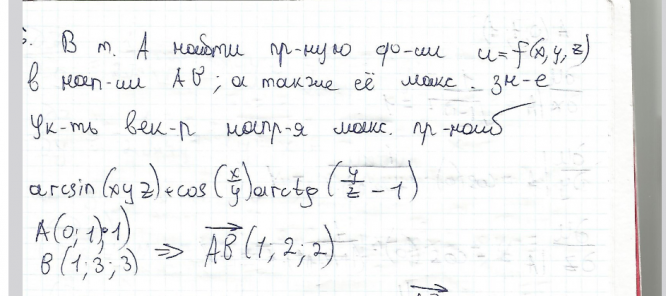 В т. А найти пр-ную ф-ии u = f(x, y, z)
в нап-ии AB; а также её макс. зн-е
Ук-ть век-р напр-я макс. пр-ной
arcsin(xyz) + cos(x/y) arctg(y/z - 1)
A(0; 1; 1)
B(1; 3; 3) => AB(1; 2; 2)